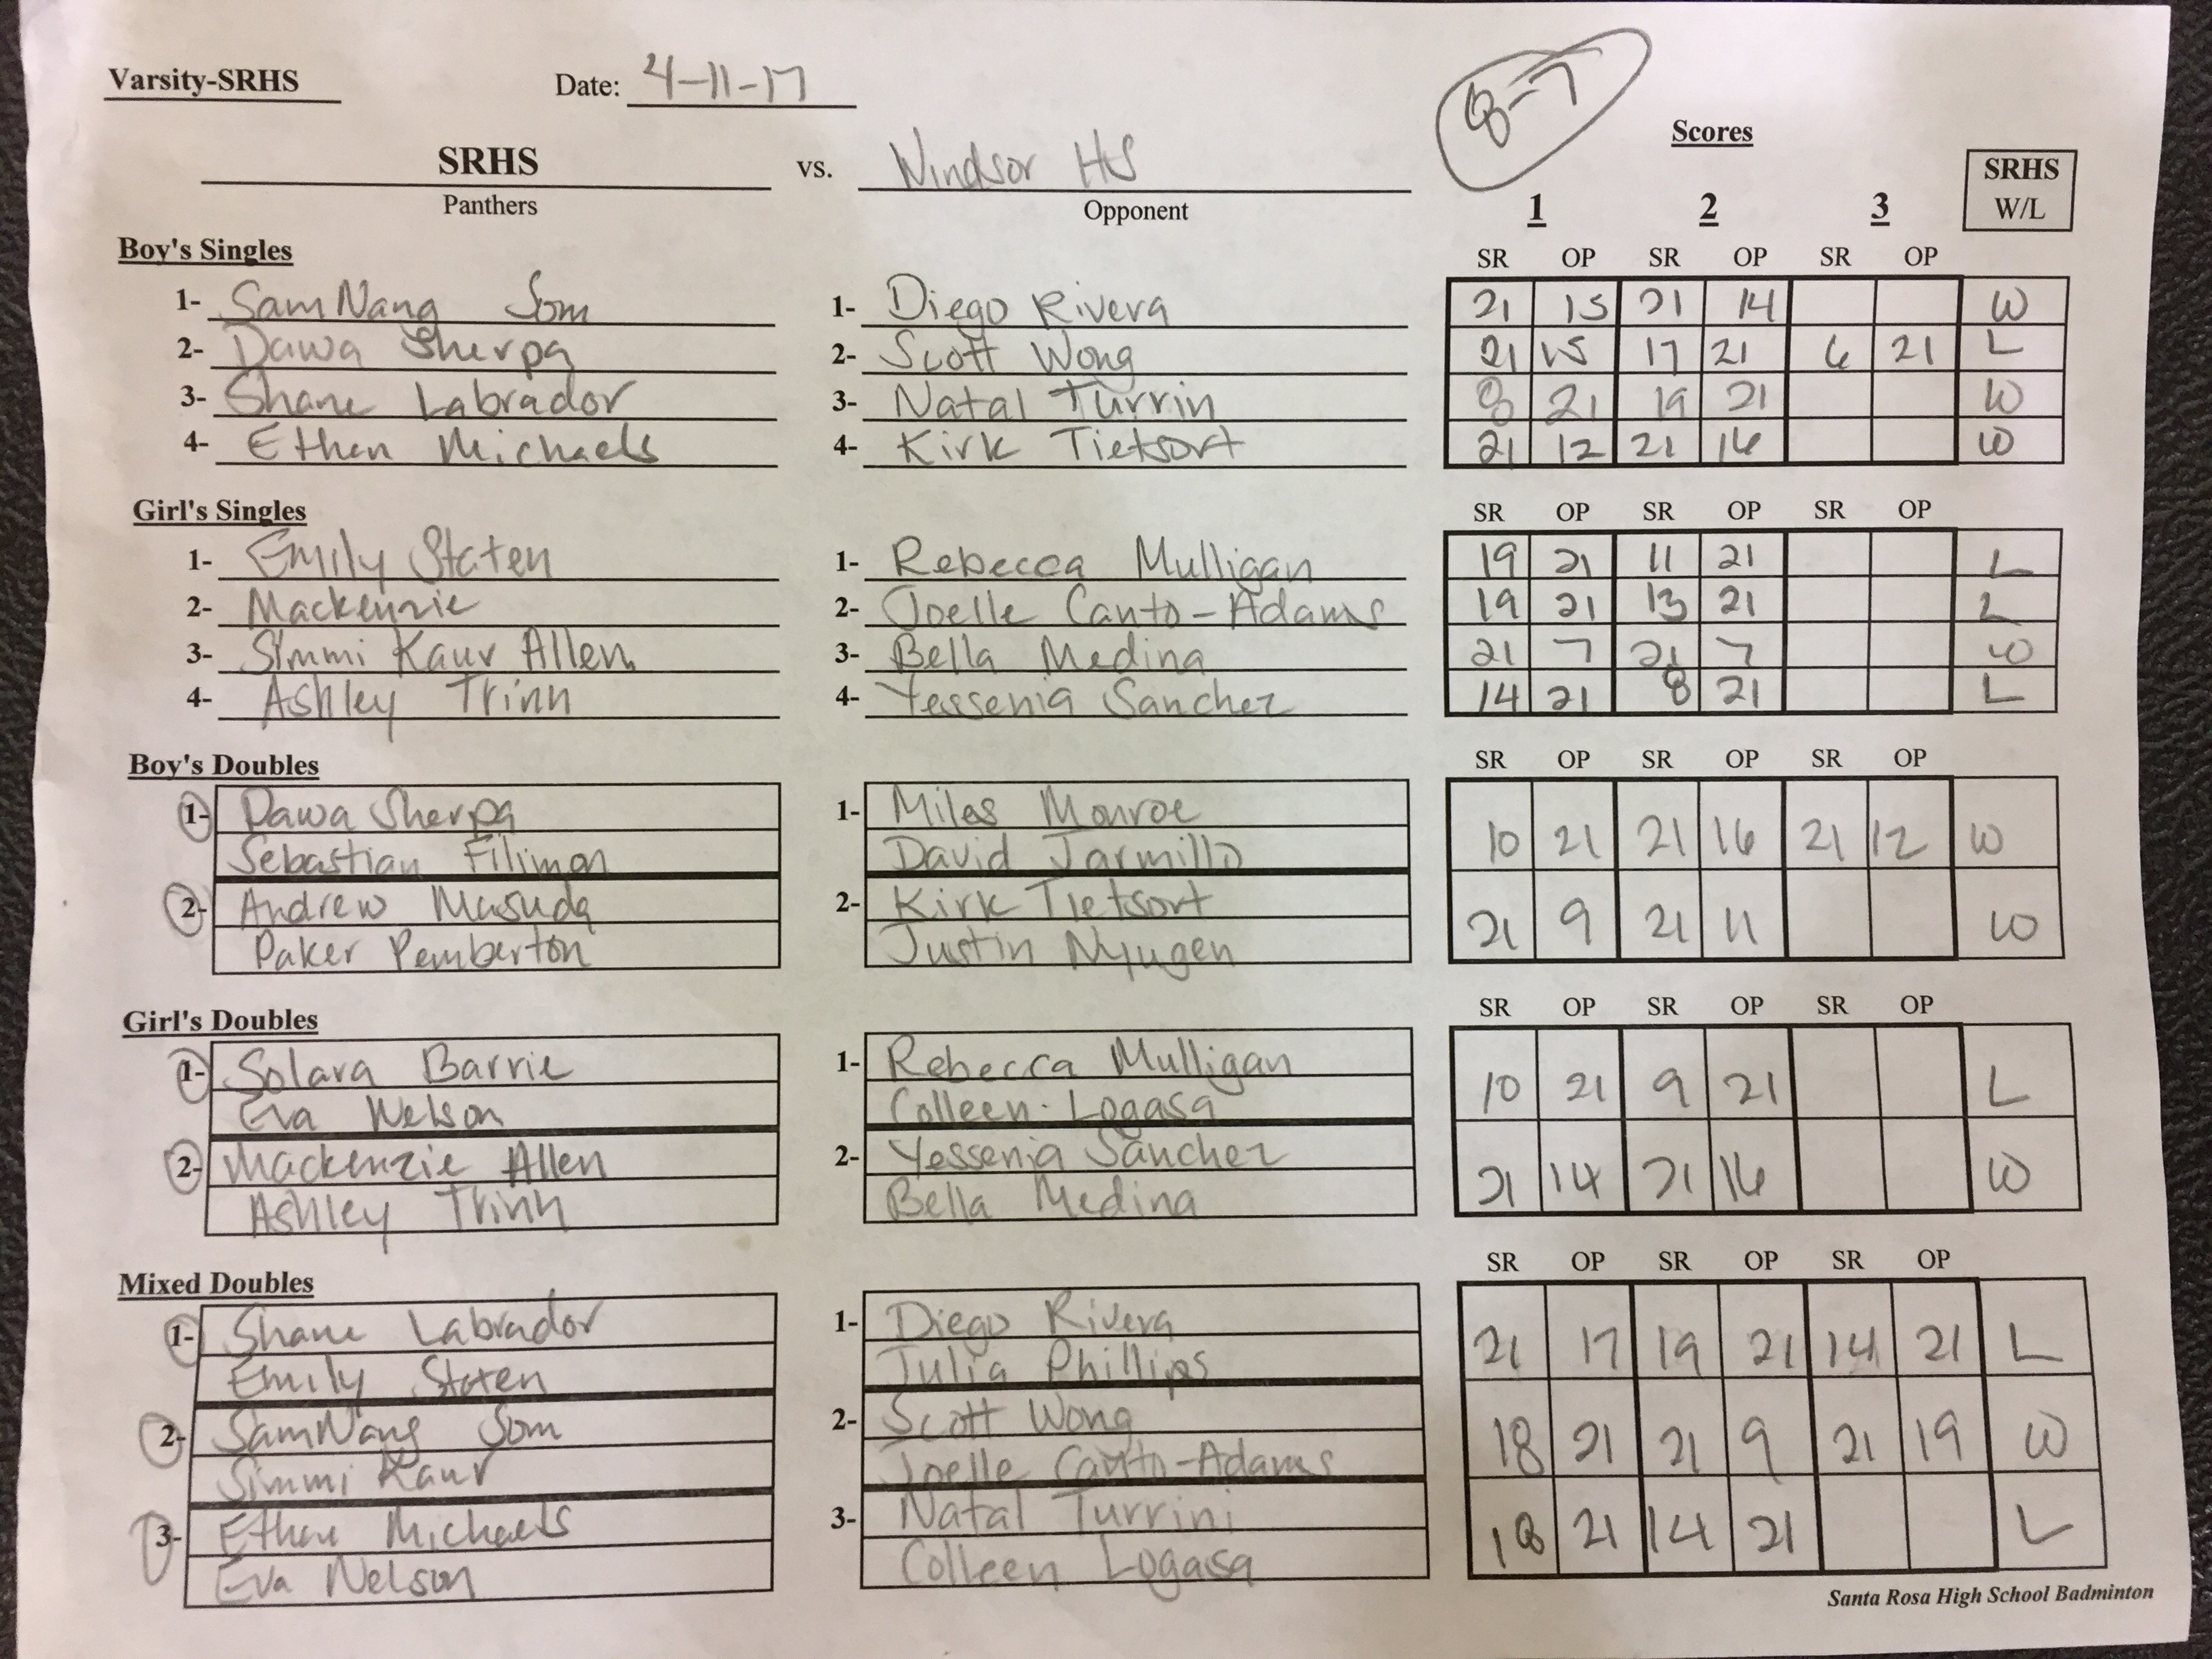 Varsity-SRHS Date: 4-11-17 8-7
Scores
SRHS vs. Windsor HS
Panthers Opponent 1 2 3 SRHS W/L
Boy's Singles SR OP SR OP SR OP
1- SamNang Som 1- Diego Rivera 21 15 21 14 W
2- Dawa Sherpa 2- Scott Wong 21 15 17 21 6 21 L
3- Shane Labrador 3- Natal Turrin 8 21 19 21 W
4- Ethan Michaels 4- Kirk Tietsort 21 12 21 16 W
Girl's Singles SR OP SR OP SR OP
1- Emily Staten 1- Rebecca Mulligan 19 21 11 21 L
2- Mackenzie 2- Joelle Canto-Adams 19 21 13 21 L
3- Simmi Kaur Allen 3- Bella Medina 21 7 21 7 W
4- Ashley Trinh 4- Yessenia Sanchez 14 21 8 21 L
Boy's Doubles SR OP SR OP SR OP
1- Dawa Sherpa 1- Miles Monroe
Sebastian Filimon David Jarmillo 10 21 21 16 21 12 W
2- Andrew Masuda 2- Kirk Tietsort
Paker Pemberton Justin Nyugen 21 9 21 11 W
Girl's Doubles SR OP SR OP SR OP
1- Solara Barrie 1- Rebecca Mulligan
Eva Nelson Colleen Logasa 10 21 9 21 L
2- Mackenzie Allen 2- Yessenia Sanchez
Ashley Trinh Bella Medina 21 14 21 16 W
Mixed Doubles SR OP SR OP SR OP
1- Shane Labrador 1- Diego Rivera
Emily Staten Julia Phillips 21 17 19 21 14 21 L
2- SamNang Som 2- Scott Wong
Simmi Kaur Joelle Canto-Adams 18 21 21 9 21 19 W
3- Ethan Michaels 3- Natal Turrini
Eva Nelson Colleen Logasa 18 21 14 21 L
Santa Rosa High School Badminton